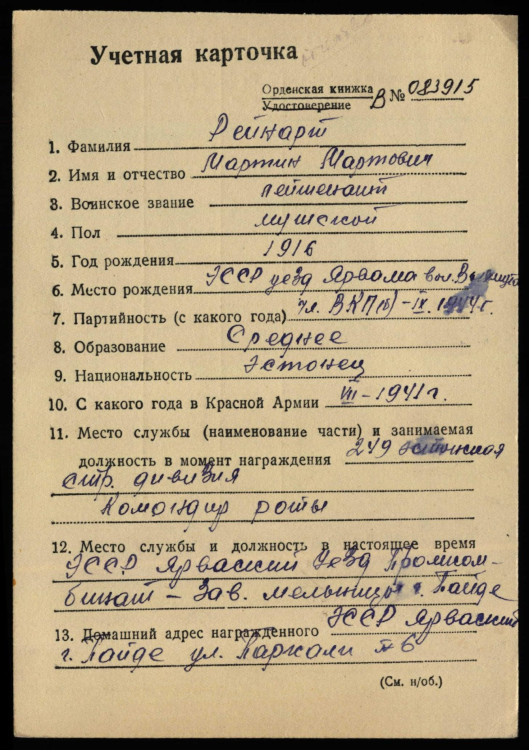 Учетная карточка
Орденская книжка
Удостоверение В № 083915
1. Фамилия Рейнарт
2. Имя и отчество Мартин Мартович
3. Воинское звание лейтенант
4. Пол мужской
5. Год рождения 1916
6. Место рождения ЭССР уезд Ярвома вол.
7. Партийность (с какого года) Чл. ВКП(б) - IX. 1944 г.
8. Образование Среднее
9. Национальность Эстонец
10. С какого года в Красной Армии VIII - 1941 г.
11. Место службы (наименование части) и занимаемая
должность в момент награждения 249 эстонская
стр. дивизия
Командир роты
12. Место службы и должность в настоящее время
ЭССР Ярваский Уезд Промком-
бинат - Зав. мельницы г. Пайде
13. Домашний адрес награжденного ЭССР Ярваский
г. Пайде ул. Паркали № 6
(См. н/об.)